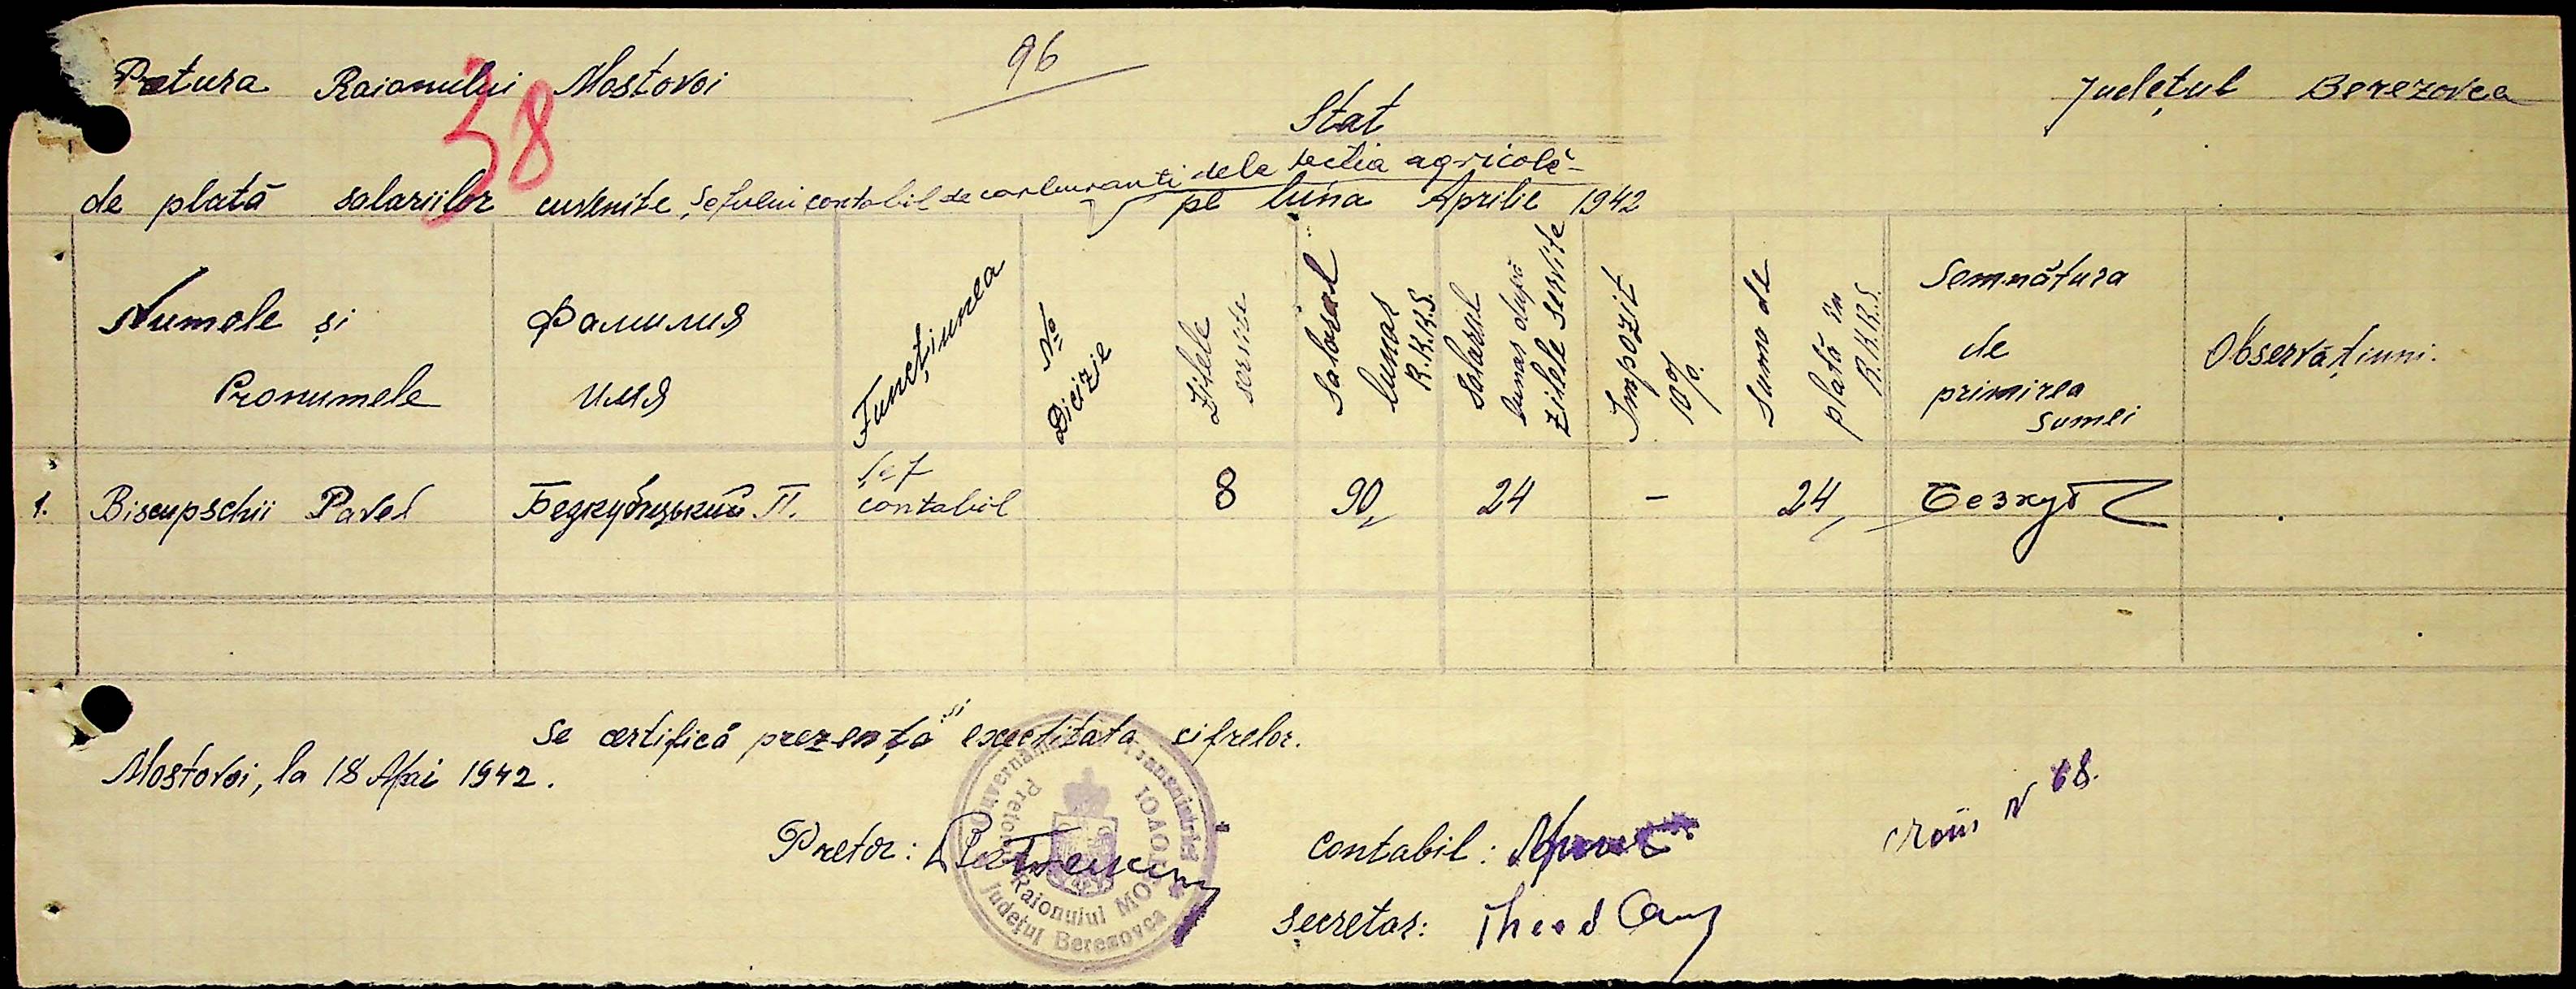 96
Pretura Raionului Mostovoi
Județul Berezovca
38
Stat
de plată salariilor cuvenite, șefului contabil de carburanti dela sectia agricolă
pe luna Aprilie 1942
Numele și Pronumele
Фамилия имя
Funcțiunea
No Dicizie
Zilele servite
Salarul lunar R.K.K.S.
Salarul lunar după zilele servite
Impozit 10%
Suma de plată în R.K.K.S.
Semnătura de primirea sumei
Observațiuni.
1. Biscupschii Pavel
П.
șef contabil
8
90
24
-
24
Безкуб
Se certifică prezența și exactitata cifrelor.
Mostovoi, la 18 Mai 1942.
Guvernământul Transnistriei
Județul Berezovca
Pretura Raionului MOSTOVOI
Pretor:
Contabil:
N 68.
Secretar: